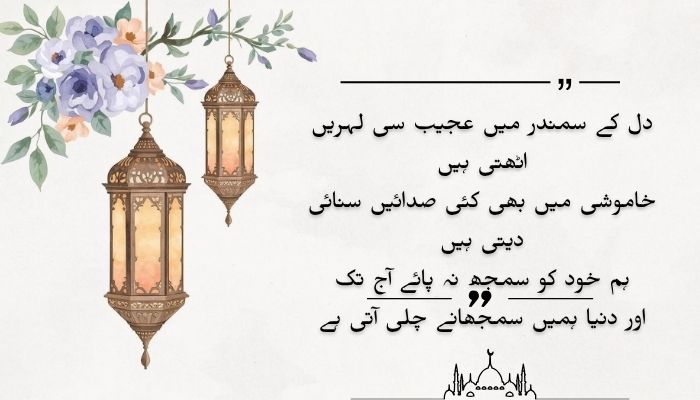 دل کے سمندر میں عجیب سی لہریں
اٹھتی ہیں
خاموشی میں بھی کئی صدائیں سنائی
دیتی ہیں
ہم خود کو سمجھ نہ پائے آج تک
اور دنیا ہمیں سمجھانے چلی آتی ہے